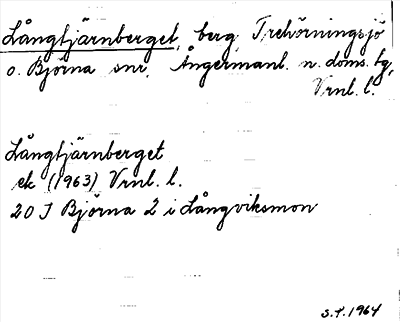 Långtjärnberget, berg Trehörningsjö
o. Björna snr, Ångermanl. n. doms. bg,
Vrnl. l.
Långtjärnberget
ek (1963) Vrnl. l.
20 J Björna 2 i Långviksmon
S.F. 1964